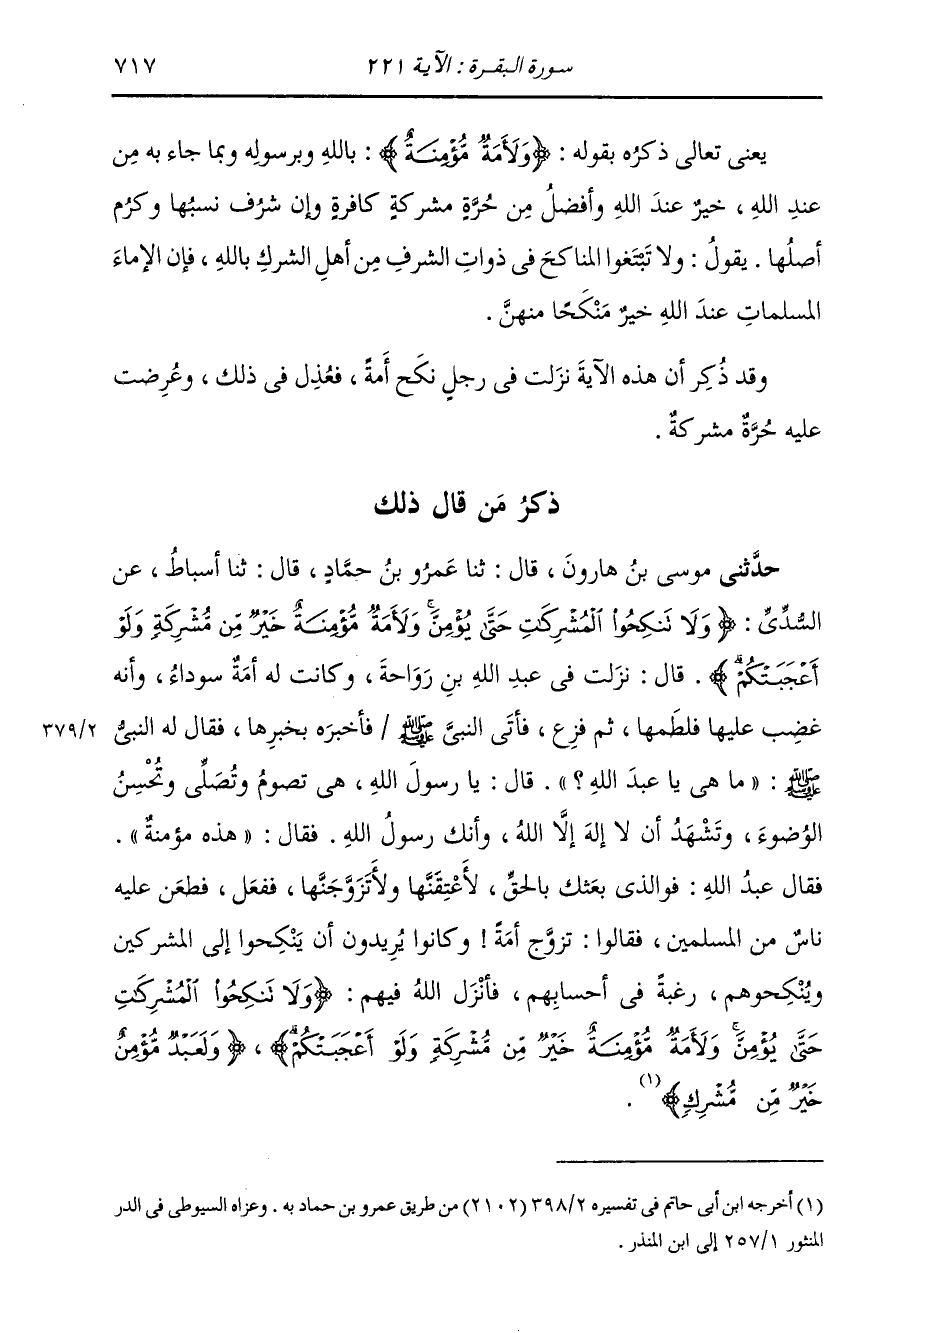 سورة البقرة : الآية ٢٢١ ٧١٧
يعنى تعالى ذكرُه بقوله : ﴿وَلَأَمَةٌ مُّؤْمِنَةٌ﴾ : باللهِ وبرسولِه وبما جاء به مِن
عندِ اللهِ ، خيرٌ عندَ اللهِ وأفضلُ مِن حُرَّةٍ مشركةٍ كافرةٍ وإن شرُف نسبُها وكرُم
أصلُها . يقولُ : ولا تَبْتَغوا المناكحَ فى ذواتِ الشرفِ مِن أهلِ الشركِ باللهِ ، فإن الإماءَ
المسلماتِ عندَ اللهِ خيرٌ مَنْكَحًا منهنَّ .
وقد ذُكِر أن هذه الآيةَ نزَلت فى رجلٍ نكَح أَمةً ، فعُذِل فى ذلك ، وعُرِضت
عليه حُرَّةٌ مشركةٌ .
ذكرُ مَن قال ذلك
حدَّثنى موسى بنُ هارونَ ، قال : ثنا عَمرُو بنُ حمَّادٍ ، قال : ثنا أسباطُ ، عن
السُّدِّىِّ : ﴿وَلَا تَنكِحُوا۟ ٱلْمُشْرِكَٰتِ حَتَّىٰ يُؤْمِنَّ ۚ وَلَأَمَةٌ مُّؤْمِنَةٌ خَيْرٌ مِّن مُّشْرِكَةٍ وَلَوْ
أَعْجَبَتْكُمْ ۗ﴾ . قال : نزَلت فى عبدِ اللهِ بنِ رَوَاحةَ ، وكانت له أمَةٌ سوداءُ ، وأنه
غضِب عليها فلطَمها ، ثم فزِع ، فأتَى النبىَّ ﷺ / فأخبرَه بخبرِها ، فقال له النبىُّ ٣٧٩/٢
ﷺ : « ما هى يا عبدَ اللهِ ؟ » . قال : يا رسولَ اللهِ ، هى تصومُ وتُصَلِّى وتُحْسِنُ
الوُضوءَ ، وتَشْهَدُ أن لا إلهَ إلَّا اللهُ ، وأنك رسولُ اللهِ . فقال : « هذه مؤمنةٌ » .
فقال عبدُ اللهِ : فوالذى بعَثك بالحقِّ ، لأُعْتِقَنَّها ولأَتَزَوَّجَنَّها ، ففعَل ، فطعَن عليه
ناسٌ من المسلمين ، فقالوا : تزوَّج أمَةً ! وكانوا يُرِيدون أن يَنْكِحوا إلى المشركين
ويُنْكِحوهم ، رغبةً فى أحسابِهم ، فأنْزَل اللهُ فيهم : ﴿وَلَا تَنكِحُوا۟ ٱلْمُشْرِكَٰتِ
حَتَّىٰ يُؤْمِنَّ ۚ وَلَأَمَةٌ مُّؤْمِنَةٌ خَيْرٌ مِّن مُّشْرِكَةٍ وَلَوْ أَعْجَبَتْكُمْ ۗ﴾ ، ﴿وَلَعَبْدٌ مُّؤْمِنٌ
خَيْرٌ مِّن مُّشْرِكٍ﴾ (١) .
(١) أخرجه ابن أبى حاتم فى تفسيره ٣٩٨/٢ (٢١٠٢) من طريق عمرو بن حماد به . وعزاه السيوطى فى الدر
المنثور ٢٥٧/١ إلى ابن المنذر .